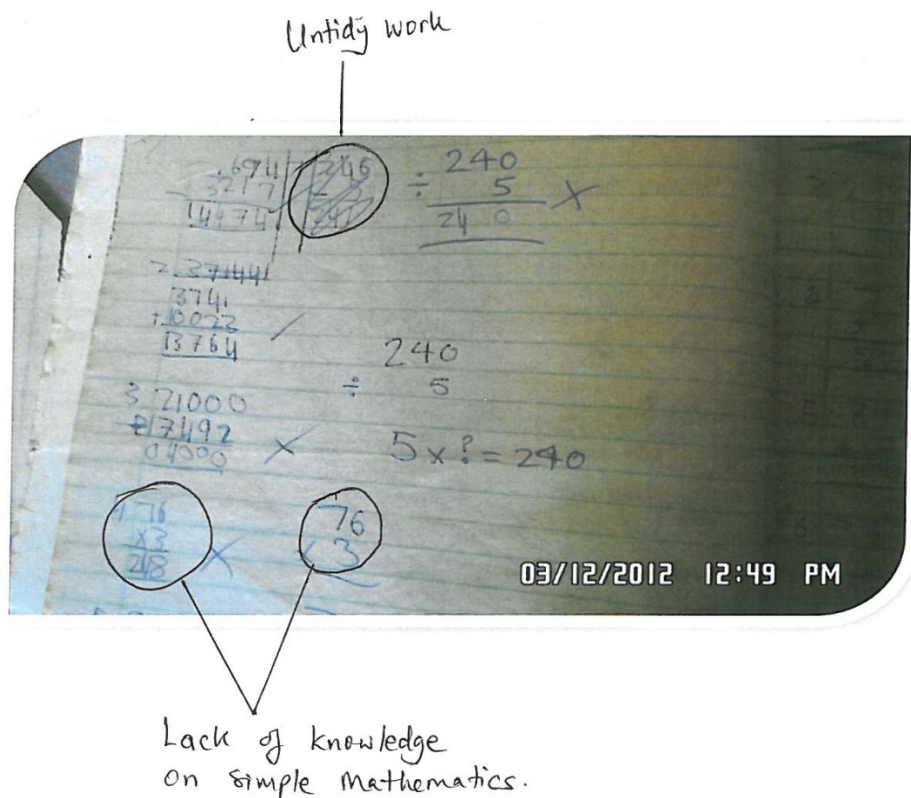 Untidy work
694
3217
14474
246
240
÷ 5
240 X
2. 371441
3741
+10023
13764 /
240
÷ 5
3 21000
17492
04000 X
5 x ? = 240
4 76
x3
248 X
76
x 3
03/12/2012 12:49 PM
Lack of knowledge
on simple mathematics.